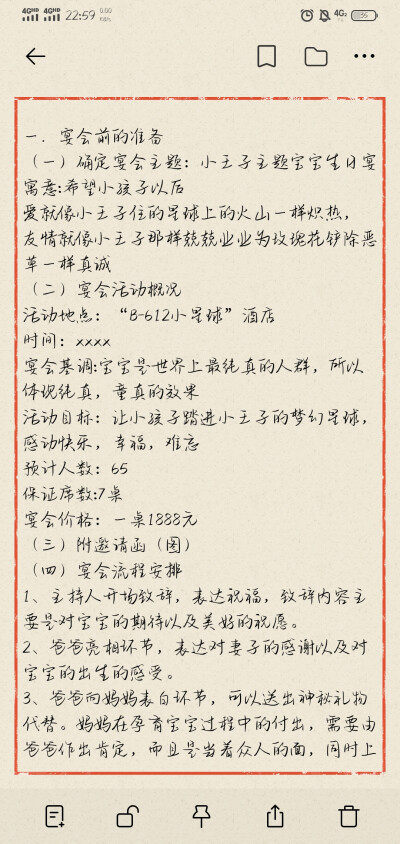 22:59
一. 宴会前的准备
（一）确定宴会主题：小王子主题宝宝生日宴
寓意:希望小孩子以后
爱就像小王子住的星球上的火山一样炽热，
友情就像小王子那样兢兢业业为玫瑰花铲除恶
草一样真诚
（二）宴会活动概况
活动地点：“B-612小星球”酒店
时间：xxxx
宴会基调:宝宝是世界上最纯真的人群，所以
体现纯真，童真的效果
活动目标：让小孩子踏进小王子的梦幻星球，
感动快乐，幸福，难忘
预计人数：65
保证席数:7桌
宴会价格：一桌1888元
（三）附邀请函（图）
（四）宴会流程安排
1、主持人开场致辞，表达祝福，致辞内容主
要是对宝宝的期待以及美好的祝愿。
2、爸爸亮相环节，表达对妻子的感谢以及对
宝宝的出生的感受。
3、爸爸向妈妈表白环节，可以送出神秘礼物
代替。妈妈在孕育宝宝过程中的付出，需要由
爸爸作出肯定，而且是当着众人的面，同时上